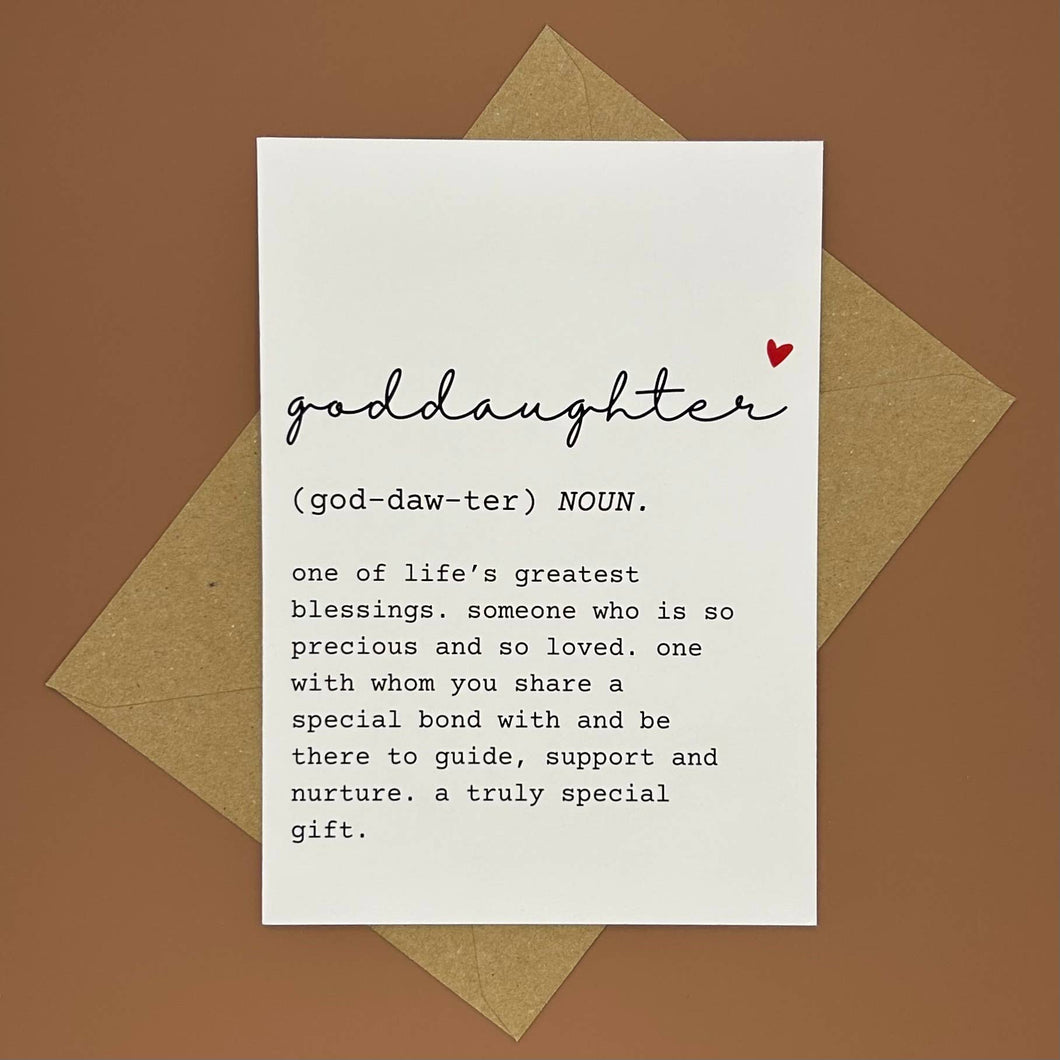 goddaughter
(god-daw-ter) NOUN.
one of life’s greatest
blessings. someone who is so
precious and so loved. one
with whom you share a
special bond with and be
there to guide, support and
nurture. a truly special
gift.